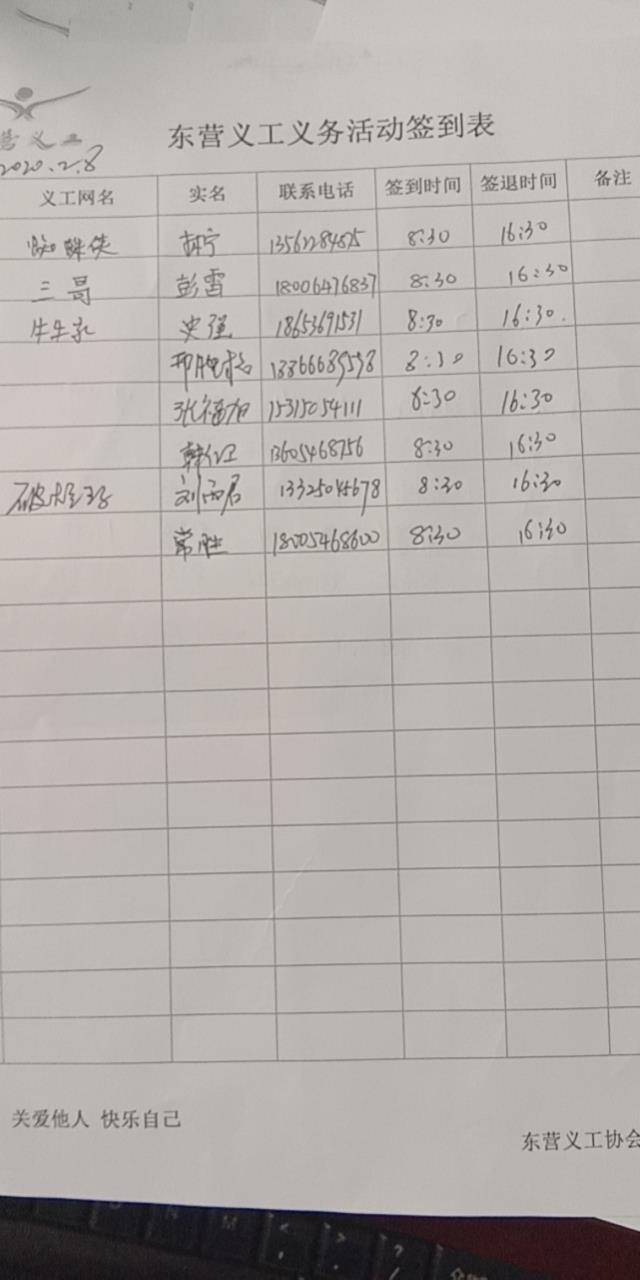 营义工
2020.2.8
东营义工义务活动签到表
义工网名 实名 联系电话 签到时间 签退时间 备注
蜘蛛侠 宁 8:30 16:30
三哥 彭雪 18006476837 8:30 16:30
牛牛 史强 18653691531 8:30 16:30
8:30 16:30
张福 15315054111 8:30 16:30
韩红 13605468756 8:30 16:30
破 刘雨君 13325045678 8:30 16:30
常胜 18005468600 8:30 16:30
关爱他人 快乐自己
东营义工协会
N M < , > . ? /